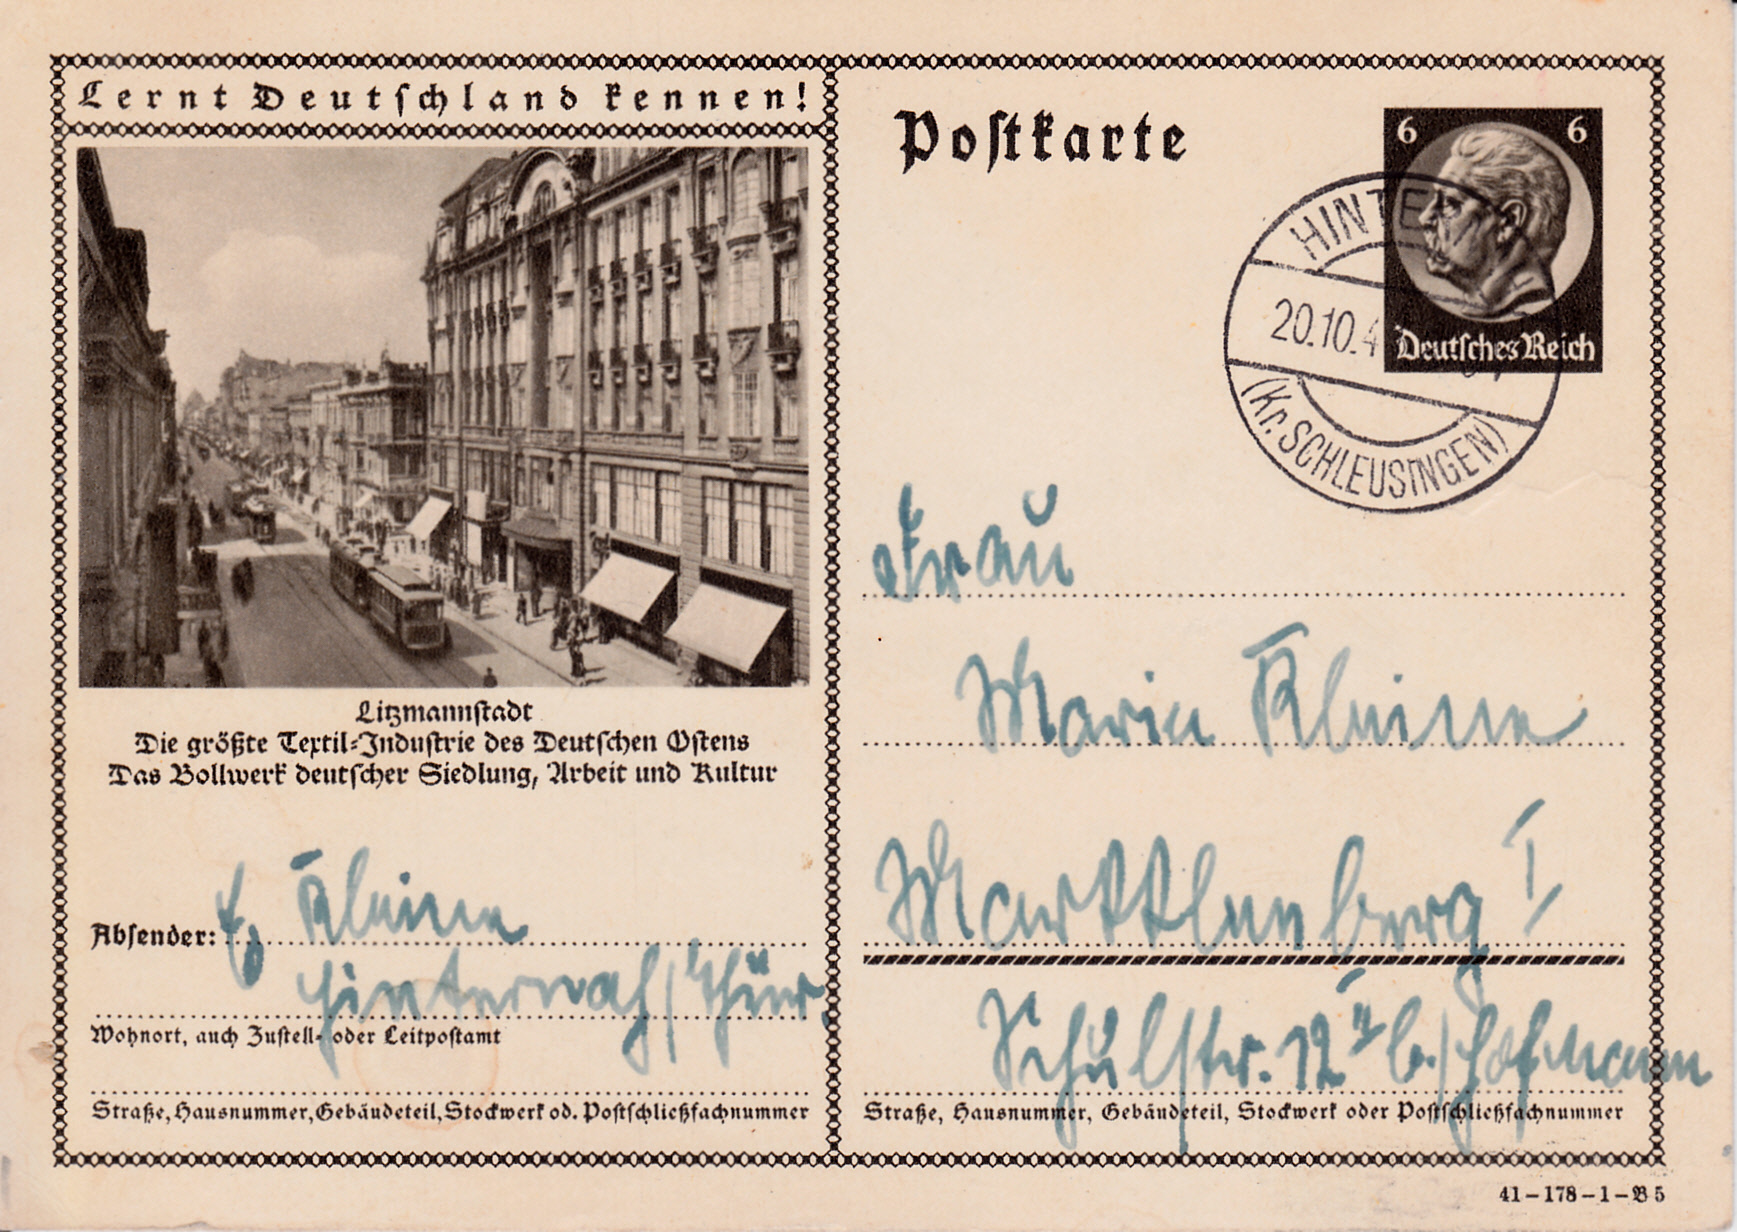 Lernt Deutschland kennen!
Litzmannstadt
Die größte Textil-Industrie des Deutschen Ostens
Das Bollwerk deutscher Siedlung, Arbeit und Kultur
Absender: E. Kleine
Hinternah/Thür.
Wohnort, auch Zustell- oder Leitpostamt
Straße, Hausnummer, Gebäudeteil, Stockwerk od. Postschließfachnummer
Postkarte
6 6
Deutsches Reich
HINTE
20.10.4
(Kr. SCHLEUSINGEN)
Frau
Maria Kleine
Markkleeberg I
Schulstr. 12 II b./Hofmann
Straße, Hausnummer, Gebäudeteil, Stockwerk oder Postschließfachnummer
41-178-1-B5